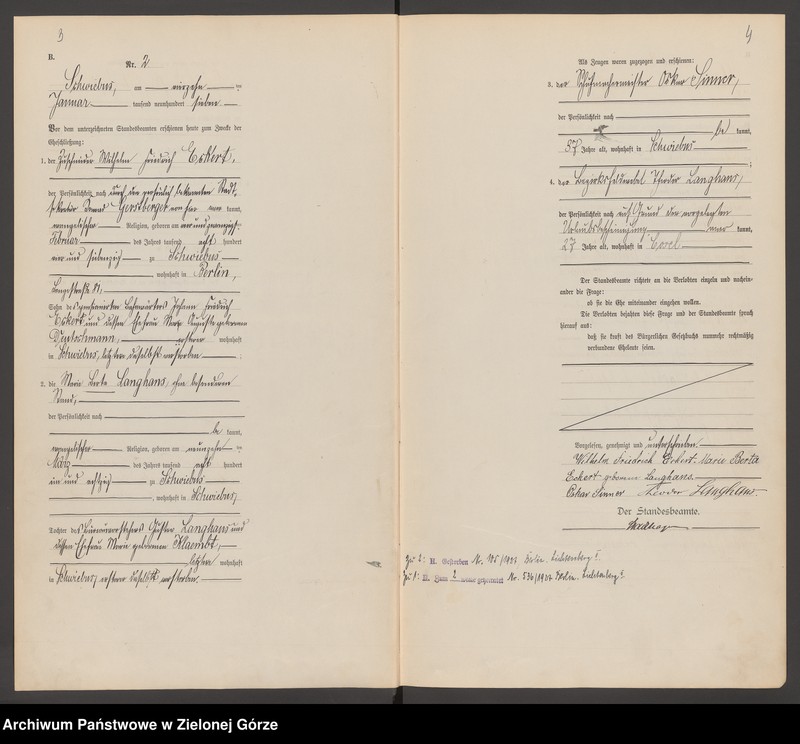 3
B.
Nr. 2
Schwiebus, am vierzehnten
Januar tausend neunhundert sieben
Vor dem unterzeichneten Standesbeamten erschienen heute zum Zwecke der
Eheschließung:
1. der Zuschneider Wilhelm Friedrich Eckert,
der Persönlichkeit nach durch den persönlich bekannten Stadt-
sekretär Gerstberger von hier kannt,
evangelischer Religion, geboren am vierundzwanzigsten
Februar des Jahres tausend acht hundert
vier und siebenzig zu Schwiebus
, wohnhaft in Berlin,
Sohn des pensionierten Johann Friedrich
Eckert und dessen Ehefrau Auguste geborenen
ersterer wohnhaft
in Schwiebus, letztere daselbst verstorben ;
2. die Marie Berta Langhans, ohne besonderen
Stand,
der Persönlichkeit nach
be kannt,
evangelischer Religion, geboren am neunzehnten
März des Jahres tausend acht hundert
ein und achtzig zu Schwiebus
, wohnhaft in Schwiebus,
Tochter des Gustav Langhans und
dessen Ehefrau Marie geborenen Klaembt,
letztere wohnhaft
in Schwiebus, ersterer daselbst verstorben.
4
Als Zeugen waren zugezogen und erschienen:
3. der Schuhmachermeister Oskar Sinner,
der Persönlichkeit nach
be kannt,
37 Jahre alt, wohnhaft in Schwiebus ;
4. der Bezirksfeldwebel Theodor Langhans,
der Persönlichkeit nach auf Grund der vorgelegten
Urlaubsbescheinigung kannt,
27 Jahre alt, wohnhaft in Cosel
Der Standesbeamte richtete an die Verlobten einzeln und nachein-
ander die Frage:
ob sie die Ehe miteinander eingehen wollen.
Die Verlobten bejahten diese Frage und der Standesbeamte sprach
hierauf aus:
daß sie kraft des Bürgerlichen Gesetzbuchs nunmehr rechtmäßig
verbundene Eheleute seien.
Vorgelesen, genehmigt und unterschrieben.
Wilhelm Friedrich Eckert. Marie Berta
Eckert geborene Langhans.
Oskar Sinner Theodor Langhans.
Der Standesbeamte.
Zu 2: II. Gestorben Nr. Berlin-Lichtenberg I.
Zu 1: II. Zum 2 Nr. 536/1927 Berlin-Lichtenberg I.
Archiwum Państwowe w Zielonej Górze